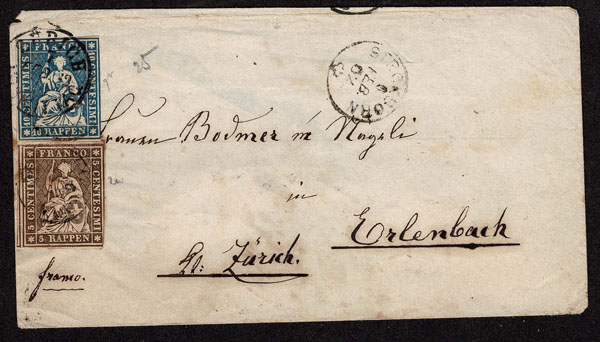 FRANCO
10 CENTIMES
10 CENTESIMI
10 RAPPEN
25
STECKBORN
FEB
Frauen Bodmer
FRANCO
5 CENTIMES
5 CENTESIMI
5 RAPPEN
in
Erlenbach
Kt. Zürich.
franco.